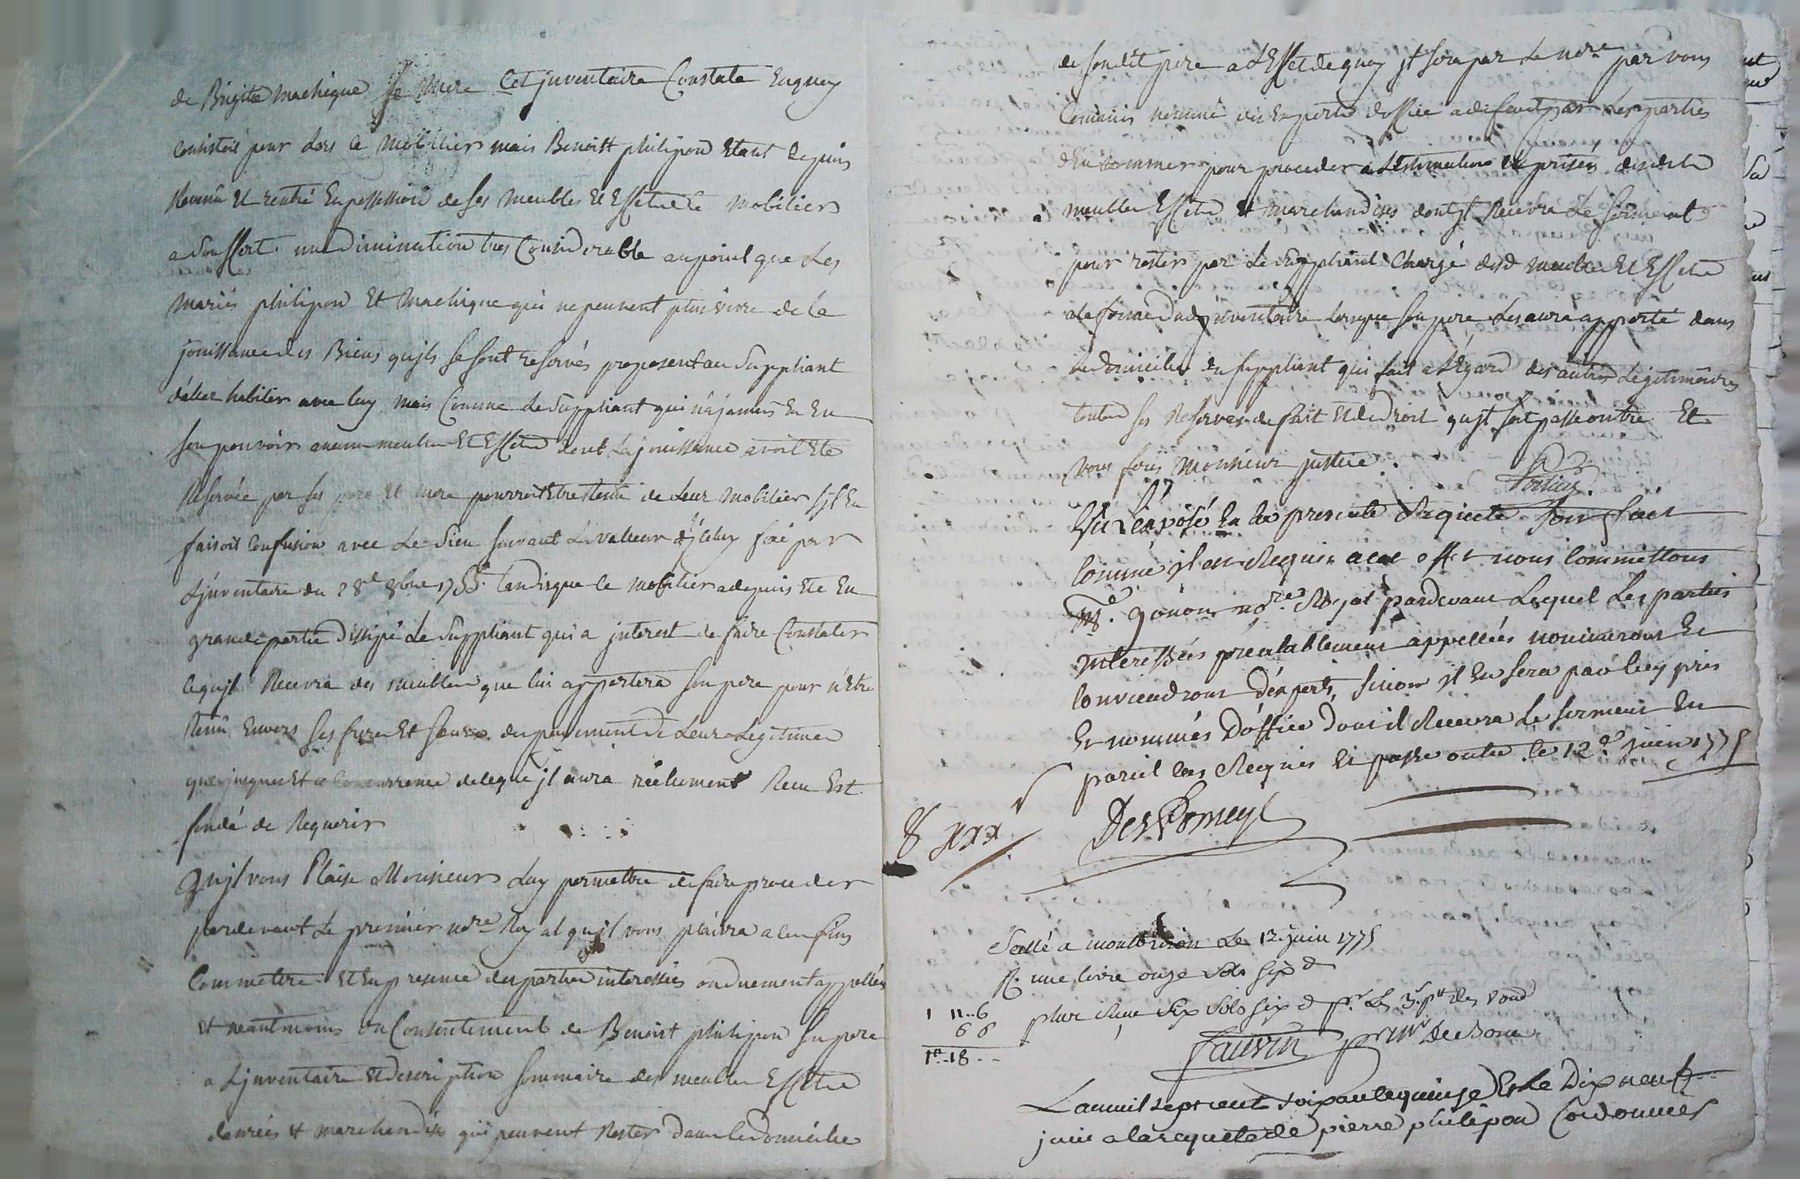 de Brigitte machique Sa Mere Cet juventaire Constate En quoy
Consistoit pour Lors le Mobilier mais Benoist philipon Etant depuis
Revenû Et rentré En possession de ses meubles Et Effets Le mobilier
a souffert une diminution tres Considerable au point que Les
mariés philipon Et Machique qui ne peuvent plus vivre de la
jouissance des Biens qujls se sont reservés proposent au Suppliant
d'aller habiter avec luy mais Comme Le Suppliant qui n'a jamais Eu En
son pouvoir aucun meubles Et Effets dont La jouissance avoit Eté
Reservée par ses pere Et mere pourroit Etre tenu de Leur mobilier sjl En
faisoit Confusion avec Le Sien suivant La valleur d'jceluy fixé par
Ljnventaire du 28e 8bre 1755 tandisque le mobilier a depuis Eté En
grande partie dissipé Le Suppliant qui a jnterest de faire Constater
ce qujl Recevra des meubles que lui apportera son pere pour n'être
tenû Envers ses freres Et soeurs du payement de Leurs Legitimes
que jusques Et a Concurrence de ce qu'jl aura réellement Recu Est
fondé de Requerir
Qujl vous Plaise Monsieur Luy permettre de faire proceder
pardevant Le premier nore Royal qujl vous plaira a ces fins
Commettre Et En presence des parties interessées ou duement appellées
et neantmoins du Consentement de Benoist philipon Son pere
a Ljnventaire Et description sommaire des meubles Effets
denrées et marchandises qui peuvent Rester dans Le domicile
de sondit pere a L'Effet de quoy jl sera par Le nore par vous
Commis nommé des Experts d'office a defaut par Les parties
d'En nommer pour proceder a L'estimation Et prisée desdits
meubles Effets Et marchandises dont jl Recevra Le serment
pour rester par Le Suppliant Chargé desd meubles Et Effets
a la forme dudt jnventaire Lorsque son pere Les aura apporté dans
le domicile du suppliant qui fait a L'Egard des autres Legitimaires
toutes ses Reserves de fait Et de droit qujl soit passé outre Et
vous ferés Monsieur justice
Vû L'exposé En la presente Requete soit fait
Comme jl est Requis a cet effet nous Commettons
Me gonon nore Royal pardevant Lequel Les parties
interessées prealablement appellées nommeront Et
Conviendront d'experts, sinon jl En sera par luy pris
Et nommés D'office dont il Recevra Le serment En
pareil Cas Requis Et passé outre le 12e juin 1775
8 xxx
DesPomeys
Scellé a montbrison Le 12 juin 1775
R. une livre onze sols six d
1 11..6
6 6
1# 18 ..
plus Recu six sols six d pr Les 3 pt des vond
fauvin
L'an mil sept cent soixante quinze Et Le Dix neuf
juin a la requete de pierre philipon Cordonnier